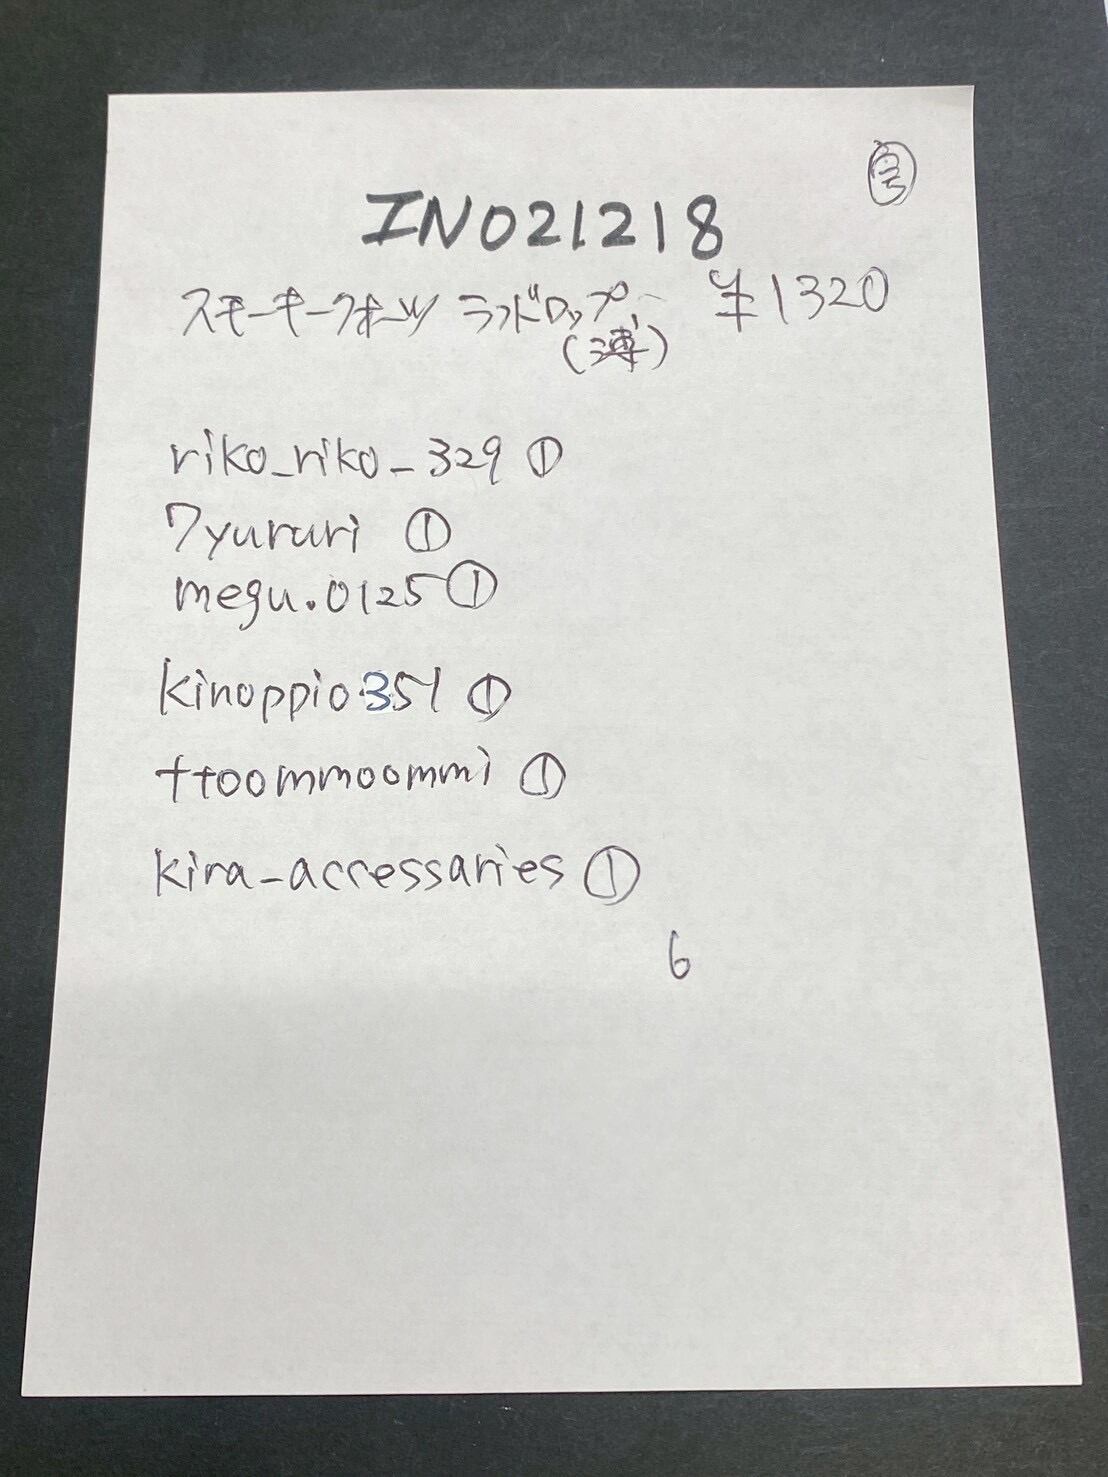 IN021218
スモーキークォーツ ラフドロップ ¥1320
(薄)
riko_riko_329 ①
7yururi ①
megu.0125 ①
kinoppio351 ①
ttoommoommi ①
kira_accessaries ①
6